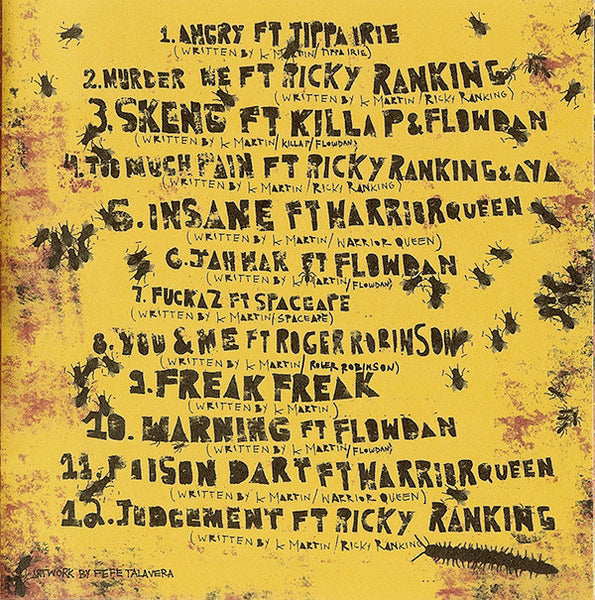 1. ANGRY FT TIPPA IRIE
(WRITTEN BY K MARTIN/TIPPA IRIE)
2. MURDER ME FT RICKY RANKING
(WRITTEN BY K MARTIN/RICKY RANKING)
3. SKENG FT KILLA P & FLOWDAN
(WRITTEN BY K MARTIN/KILLA P/FLOWDAN)
4. TOO MUCH PAIN FT RICKY RANKING & AYA
(WRITTEN BY K MARTIN/RICKY RANKING)
5. INSANE FT WARRIOR QUEEN
(WRITTEN BY K MARTIN/WARRIOR QUEEN)
6. JAH WAR FT FLOWDAN
(WRITTEN BY K MARTIN/FLOWDAN)
7. FUCKAZ FT SPACEAPE
(WRITTEN BY K MARTIN/SPACEAPE)
8. YOU & ME FT ROGER ROBINSON
(WRITTEN BY K MARTIN/ROGER ROBINSON)
9. FREAK FREAK
(WRITTEN BY K MARTIN)
10. WARNING FT FLOWDAN
(WRITTEN BY K MARTIN/FLOWDAN)
11. POISON DART FT WARRIOR QUEEN
(WRITTEN BY K MARTIN/WARRIOR QUEEN)
12. JUDGEMENT FT RICKY RANKING
(WRITTEN BY K MARTIN/RICKY RANKING
ARTWORK BY FEFE TALAVERA